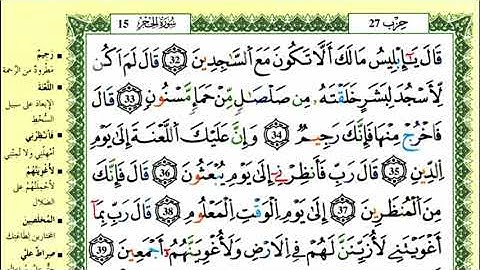 حِزْب 27
سُورَةُ الحِجْر 15
قَالَ يَٰٓإِبْلِيسُ مَا لَكَ أَلَّا تَكُونَ مَعَ ٱلسَّٰجِدِينَ 32 قَالَ لَمْ أَكُن
لِّأَسْجُدَ لِبَشَرٍ خَلَقْتَهُۥ مِن صَلْصَٰلٍ مِّنْ حَمَإٍ مَّسْنُونٍ 33 قَالَ
فَٱخْرُجْ مِنْهَا فَإِنَّكَ رَجِيمٌ 34 وَإِنَّ عَلَيْكَ ٱللَّعْنَةَ إِلَىٰ يَوْمِ
ٱلدِّينِ 35 قَالَ رَبِّ فَأَنظِرْنِىٓ إِلَىٰ يَوْمِ يُبْعَثُونَ 36 قَالَ فَإِنَّكَ
مِنَ ٱلْمُنظَرِينَ 37 إِلَىٰ يَوْمِ ٱلْوَقْتِ ٱلْمَعْلُومِ 38 قَالَ رَبِّ بِمَآ
أَغْوَيْتَنِى لَأُزَيِّنَنَّ لَهُمْ فِى ٱلْأَرْضِ وَلَأُغْوِيَنَّهُمْ أَجْمَعِينَ 39
رَجِيمٌ
مطرودٌ من الرّحمة
اللَّعْنَةَ
الإبعاد على سبيل
السُّخط
فَأَنْظِرْنِي
أمهلني ولا تُمتني
لَأُغْوِيَنَّهُمْ
لأحملنَّهم على
الضّلال
المُخْلَصِينَ
المختارين لطاعتك
صِرَاطٌ عَلَيَّ